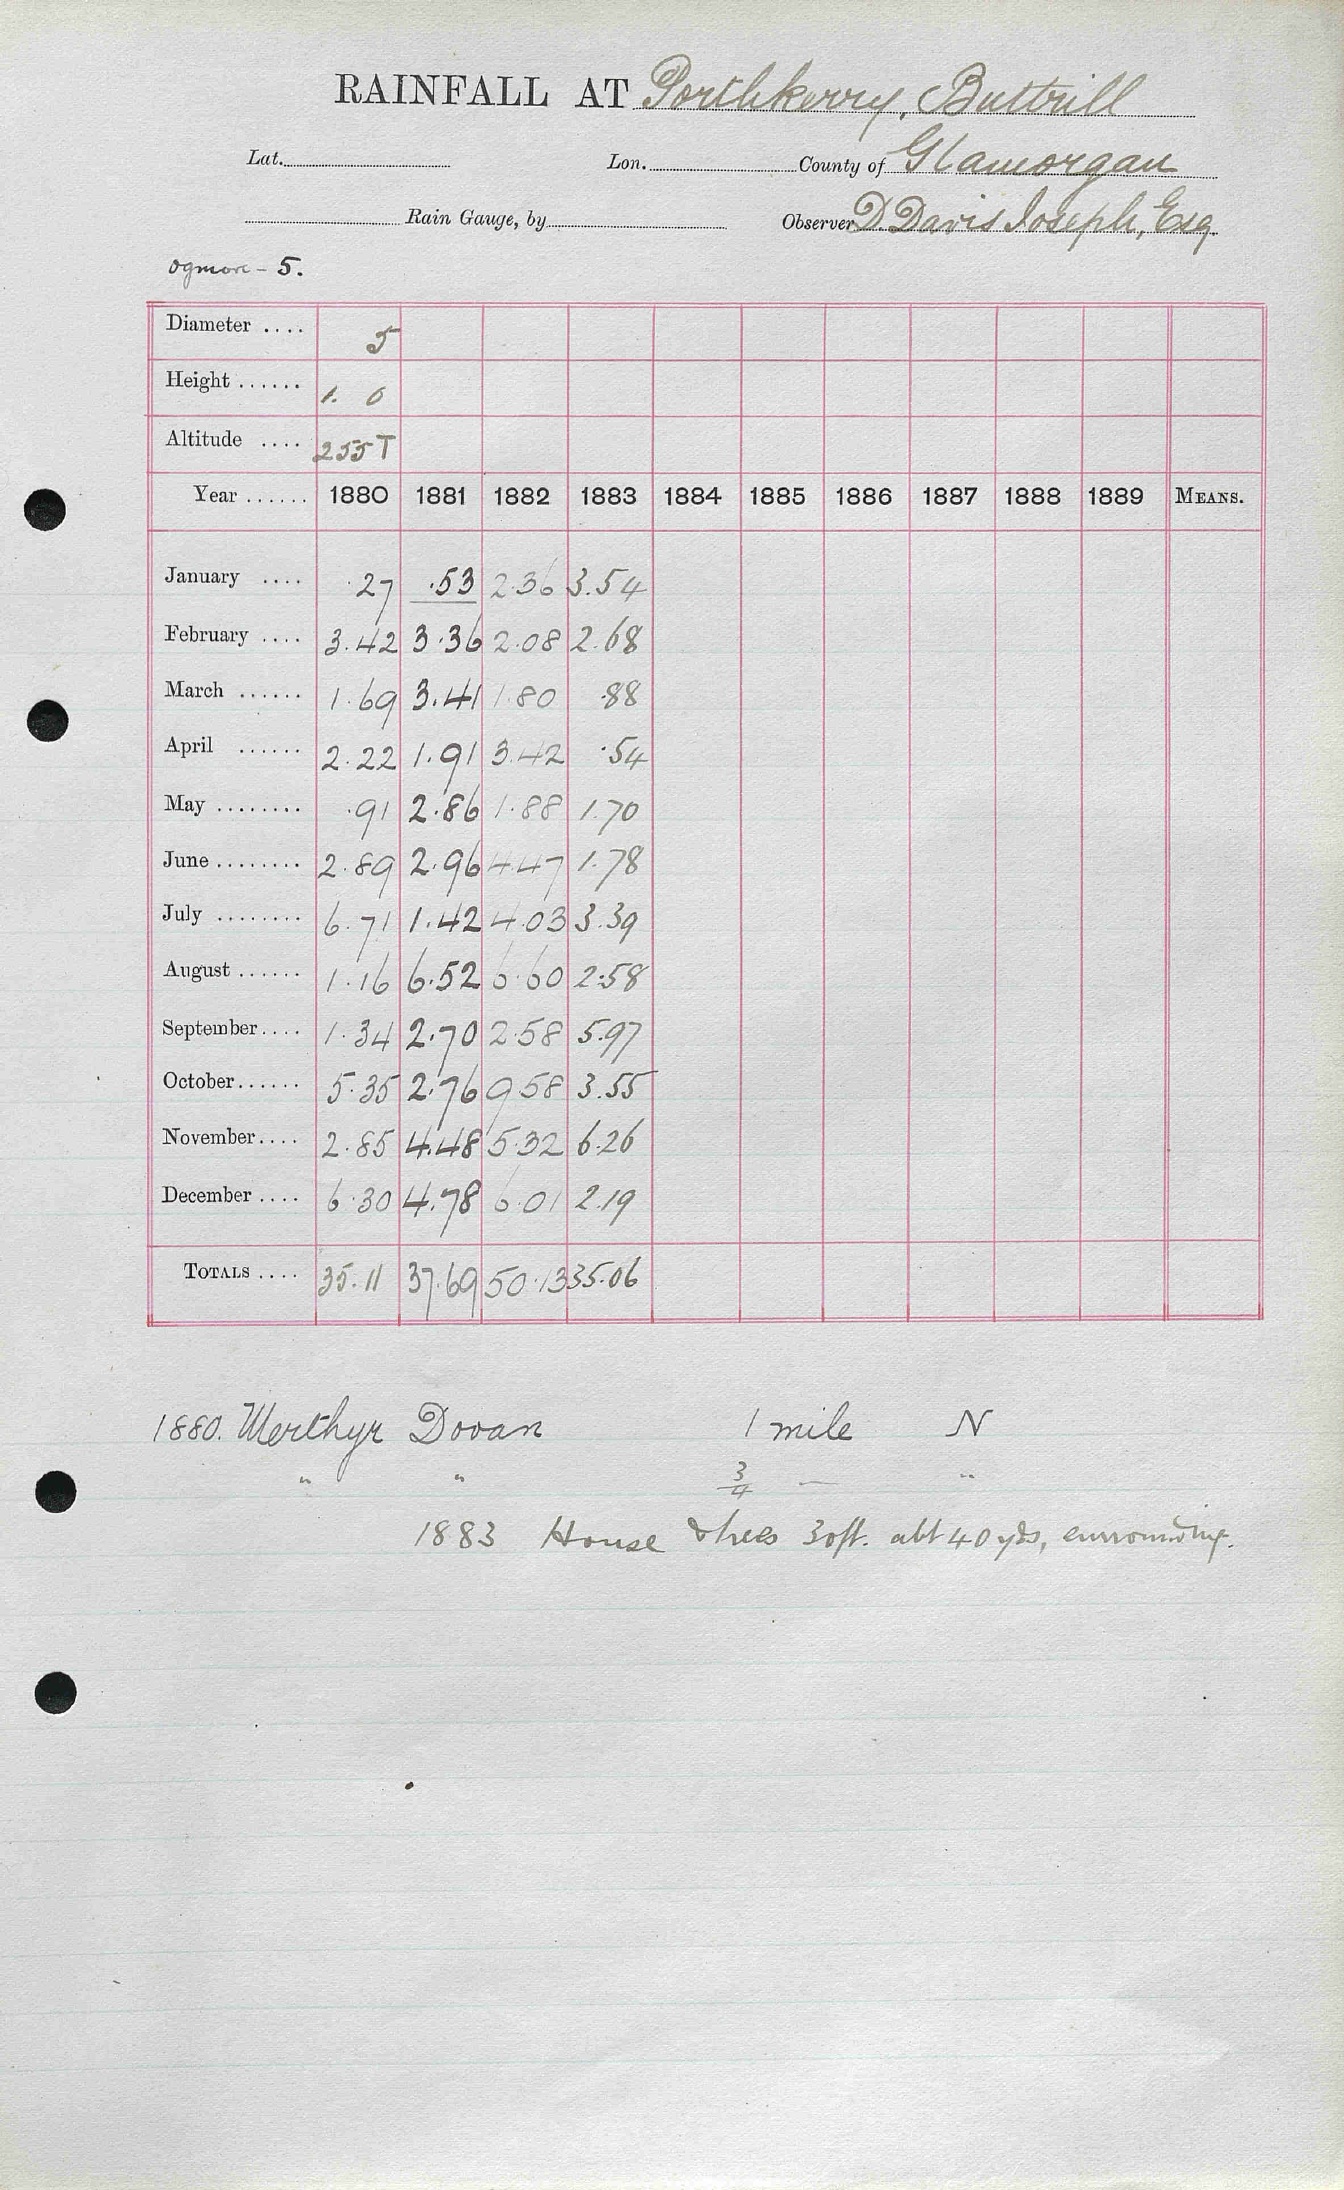 RAINFALL AT Porthkerry, Buttrill
Lat. Lon. County of Glamorgan
Rain Gauge, by Observer D. Davis Joseph, Esq.
Ogmore - 5.
Diameter .... 5
Height ...... 1. 0
Altitude .... 255 T
Year ...... 1880 1881 1882 1883 1884 1885 1886 1887 1888 1889 MEANS.
January .... .27 .53 2.36 3.54
February .... 3.42 3.36 2.08 2.68
March ...... 1.69 3.41 1.80 .88
April ...... 2.22 1.91 3.42 .54
May ........ .91 2.86 1.88 1.70
June ........ 2.89 2.96 4.47 1.78
July ........ 6.71 1.42 4.03 3.39
August ...... 1.16 6.52 6.60 2.58
September .... 1.34 2.70 2.58 5.97
October ...... 5.35 2.76 9.58 3.55
November .... 2.85 4.48 5.32 6.26
December .... 6.30 4.78 6.01 2.19
TOTALS .... 35.11 37.69 50.13 35.06
1880. Merthyr Dovan 1 mile N
" " 3/4 — "
1883 House & trees 30ft. abt 40 yds, surrounding.